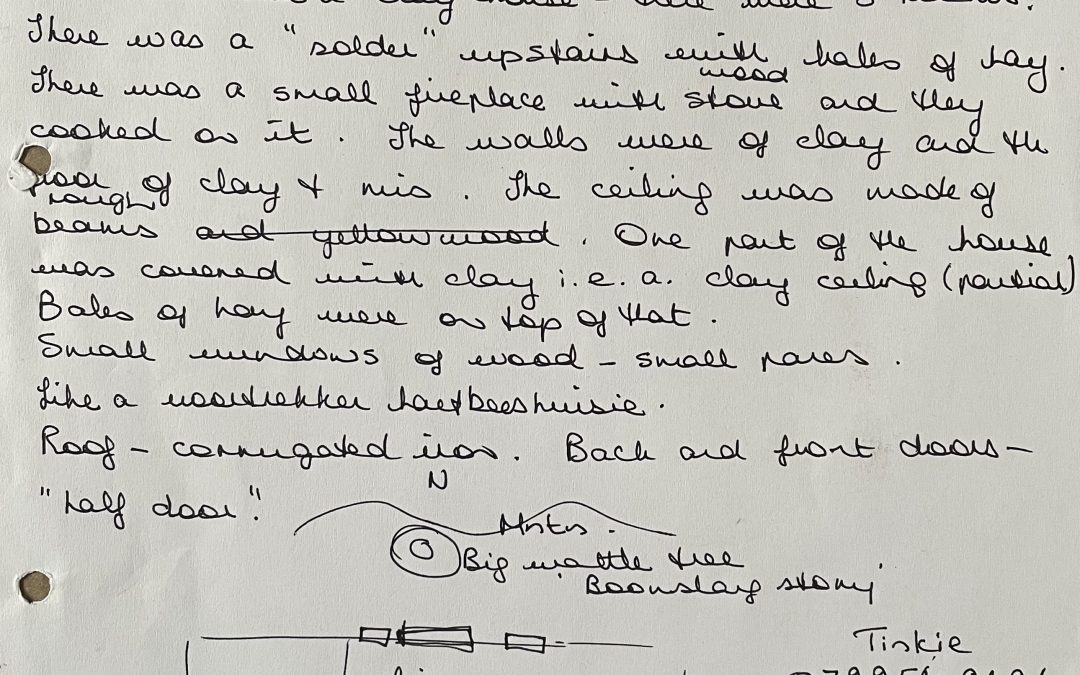 clay house - there were 3 rooms.
There was a "solder" upstairs with bales of hay.
wood
There was a small fireplace with stove and they
cooked on it. The walls were of clay and the
floor of clay & mis. The ceiling was made of
rough
beams and yellowwood. One part of the house
was covered with clay i.e. a. clay ceiling (partial)
Bales of hay were on top of that.
Small windows of wood - small panes.
Like a voortrekker hartbeeshuisie.
Roof - corrugated iron. Back and front doors -
N
"half door".
Mntns.
Big wattle tree
'Boomslang story'
Tinkie